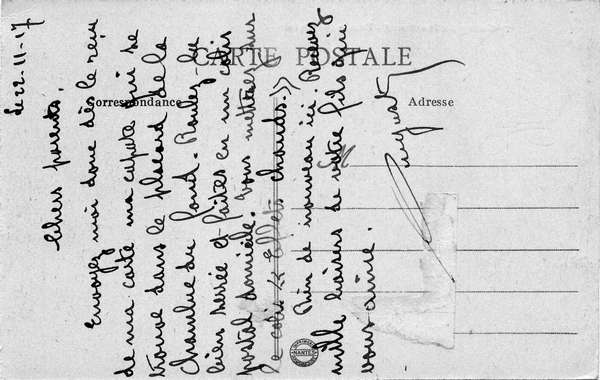 CARTE POSTALE
Correspondance
Adresse
M
Le 22-11-17
Chers parents.
Envoyez moi donc dès le reçu
de ma carte ma capote qui se
trouve dans le placard de la
chambre du fond. Roulez-la
bien serrée et faites en un colis
postal domicile. Vous mettrez sur
le colis "Effets chauds."
Rien de nouveau ici. Recevez
mille baisers de votre fils qui
vous aime.
August
NANTES